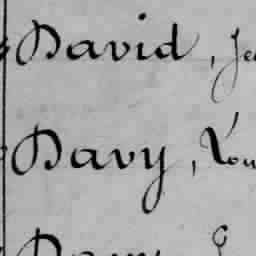 David, Je
Davy, Lou